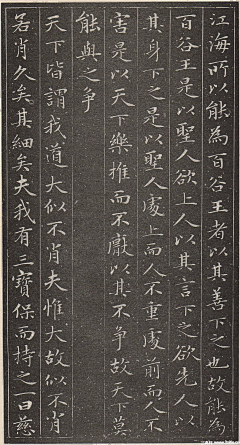 江海所以能為百谷王者以其善下之也故能為
百谷王是以聖人欲上人以其言下之欲先人以
其身下之是以聖人處上而人不重處前而人不
害是以天下樂推而不厭以其不争故天下莫
能與之争
天下皆謂我道大似不肖夫惟大故似不肖
若肖久矣其細矣夫我有三寶保而持之一曰慈